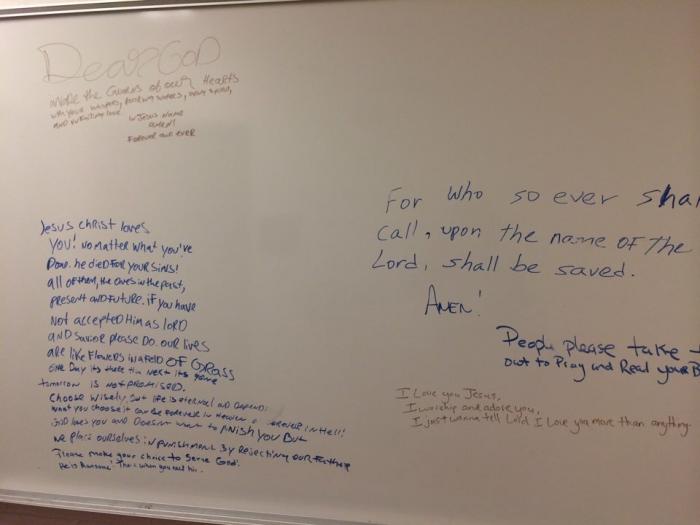 Dear GOD
the Guards of our Hearts
with your
and
in Jesus name
Amen!
Forever and ever
Jesus christ loves
you! No matter what you've
Done. he died FOR YOUR SINS!
all of them, the ones in the past,
present and Future. if you have
Not accepted Him as lord
and Savior please Do. our lives
are like Flowers in a field OF GRASS
One Day its there then next its gone
tomorrow is not promised.
Choose wisely, but life is eternal and
what you choose it can be forever in Heaven or forever in Hell!
God loves you and Doesn't want to PUNISH YOU But
we place ourselves in punishment By rejecting our Father
Please make your choice to Serve God!
He is Awesome! when you need him.
For who so ever shal
call, upon the name OF The
Lord, shall be saved.
AMEN!
People please take t
out to Pray and Read your B
I Love you Jesus,
I worship and adore you,
I just wanna tell Lord I Love you more than anything